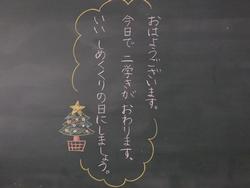 おはようございます。
今日で 二学きが おわります。
いい しめくくりの日にしましょう。